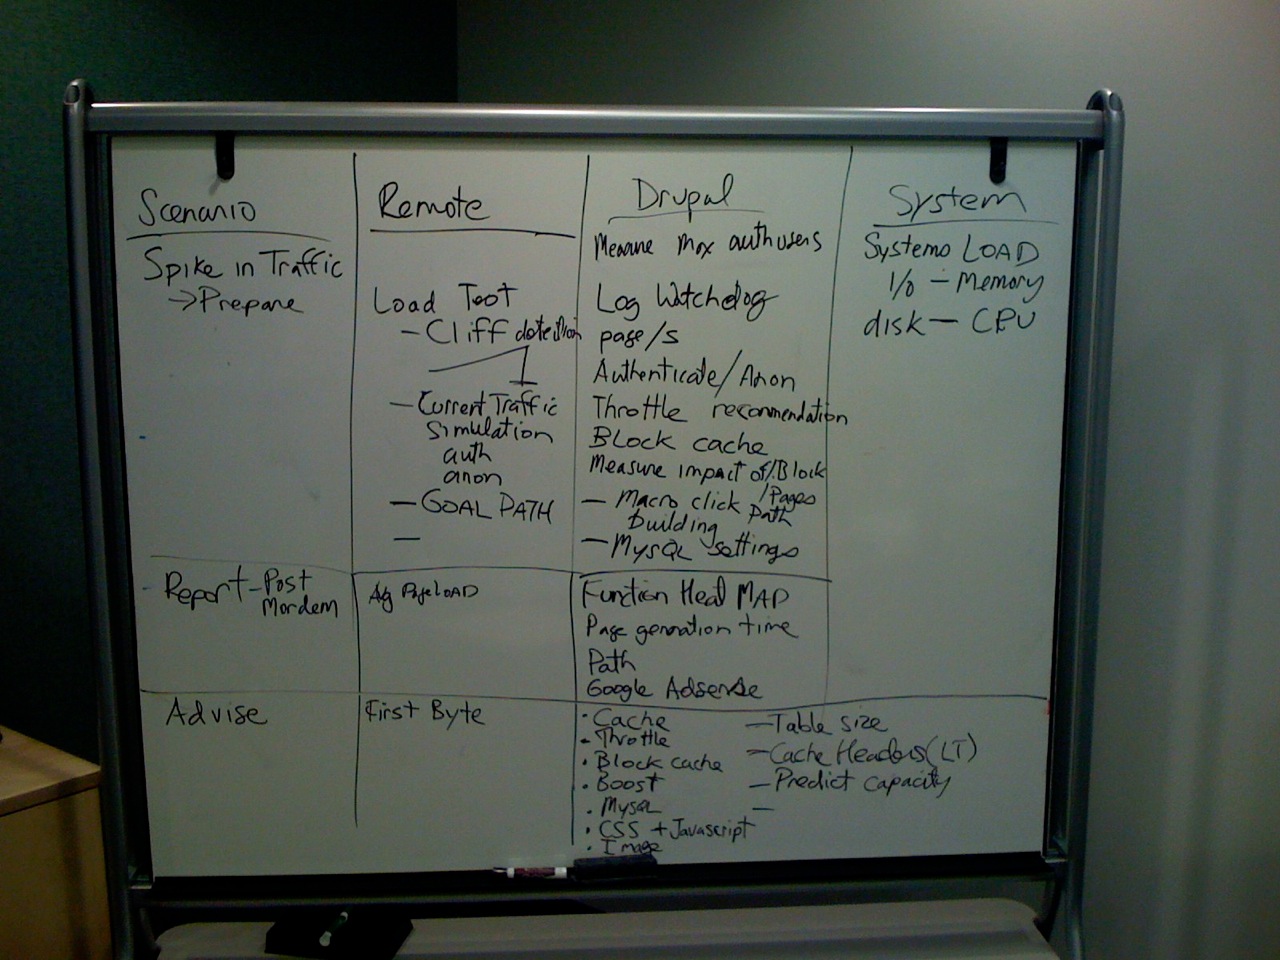 Scenario
Spike in Traffic
->Prepare
Remote
Load Test
- Cliff detection
- Current Traffic
simulation
auth
anon
- GOAL PATH
-
Drupal
Measure max auth users
Log Watchdog
page/s
Authenticate/Anon
Throttle recommendation
Block cache
Measure impact of Block
/Pages
- Macro click Path
building
- MySQL settings
System
Systems LOAD
I/o - Memory
disk - CPU
Report - Post
Mordem
Avg PageLOAD
Function Heat MAP
Page generation time
Path
Google Adsense
Advise
First Byte
· Cache
· Throttle
· Block cache
· Boost
· Mysql
· CSS + Javascript
· Image
- Table size
- Cache Headers (LT)
- Predict capacity
-